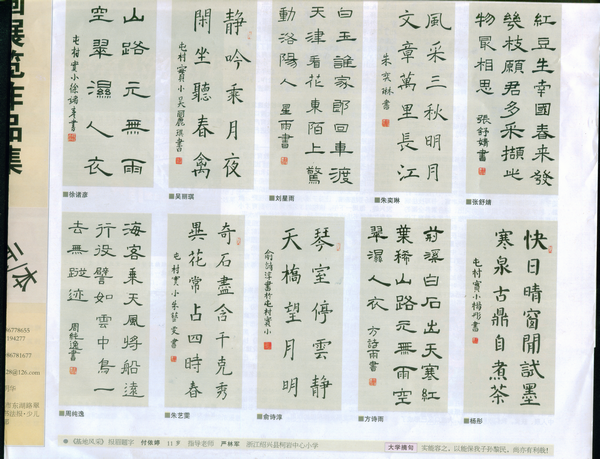 展览作品集
山路元無雨
空翠濕人衣
屯村實小徐諾彥書
■徐诺彦
靜吟乘月夜
閑坐聽春禽
屯村實小吳麗琪書
■吴丽琪
白玉誰家郎回車渡
天津看花東陌上驚
動洛陽人 星雨書
■刘星雨
風采三秋明月
文章萬里長江
朱奕琳書
■朱奕琳
紅豆生南國春來發
幾枝願君多采擷此
物最相思 張舒婧書
■张舒婧
海客乘天風將船遠
行役譬如雲中鳥一
去無蹤迹 周純逸書
■周纯逸
奇石盡含千克秀
異花常占四時春
屯村實小朱藝雯書
■朱艺雯
琴室停雲靜
天橋望月明
俞詩淳書於屯村實小
■俞诗淳
荊溪白石出天寒紅
葉稀山路元無雨空
翠濕人衣 方詩雨書
■方诗雨
快日晴窗閒試墨
寒泉古鼎自煮茶
屯村實小楊彤書
■杨彤
86778655
194277
86781677
28@126.com
《基地风采》报眉题字 付依婷 11岁 指导老师 严林军 浙江绍兴县柯岩中心小学
大学摘句 实能容之，以能保我子孙黎民，尚亦有利哉！